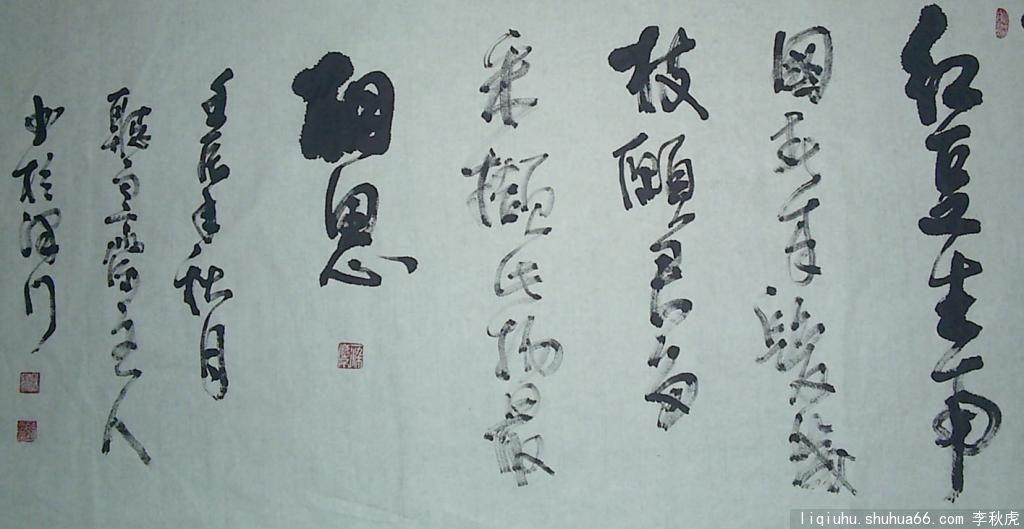 红豆生南
國春来發幾
枝願君多
采擷此物最
相思
壬辰年秋月
聽 主人
书於 川
liqiuhu.shuhua66.com 李秋虎